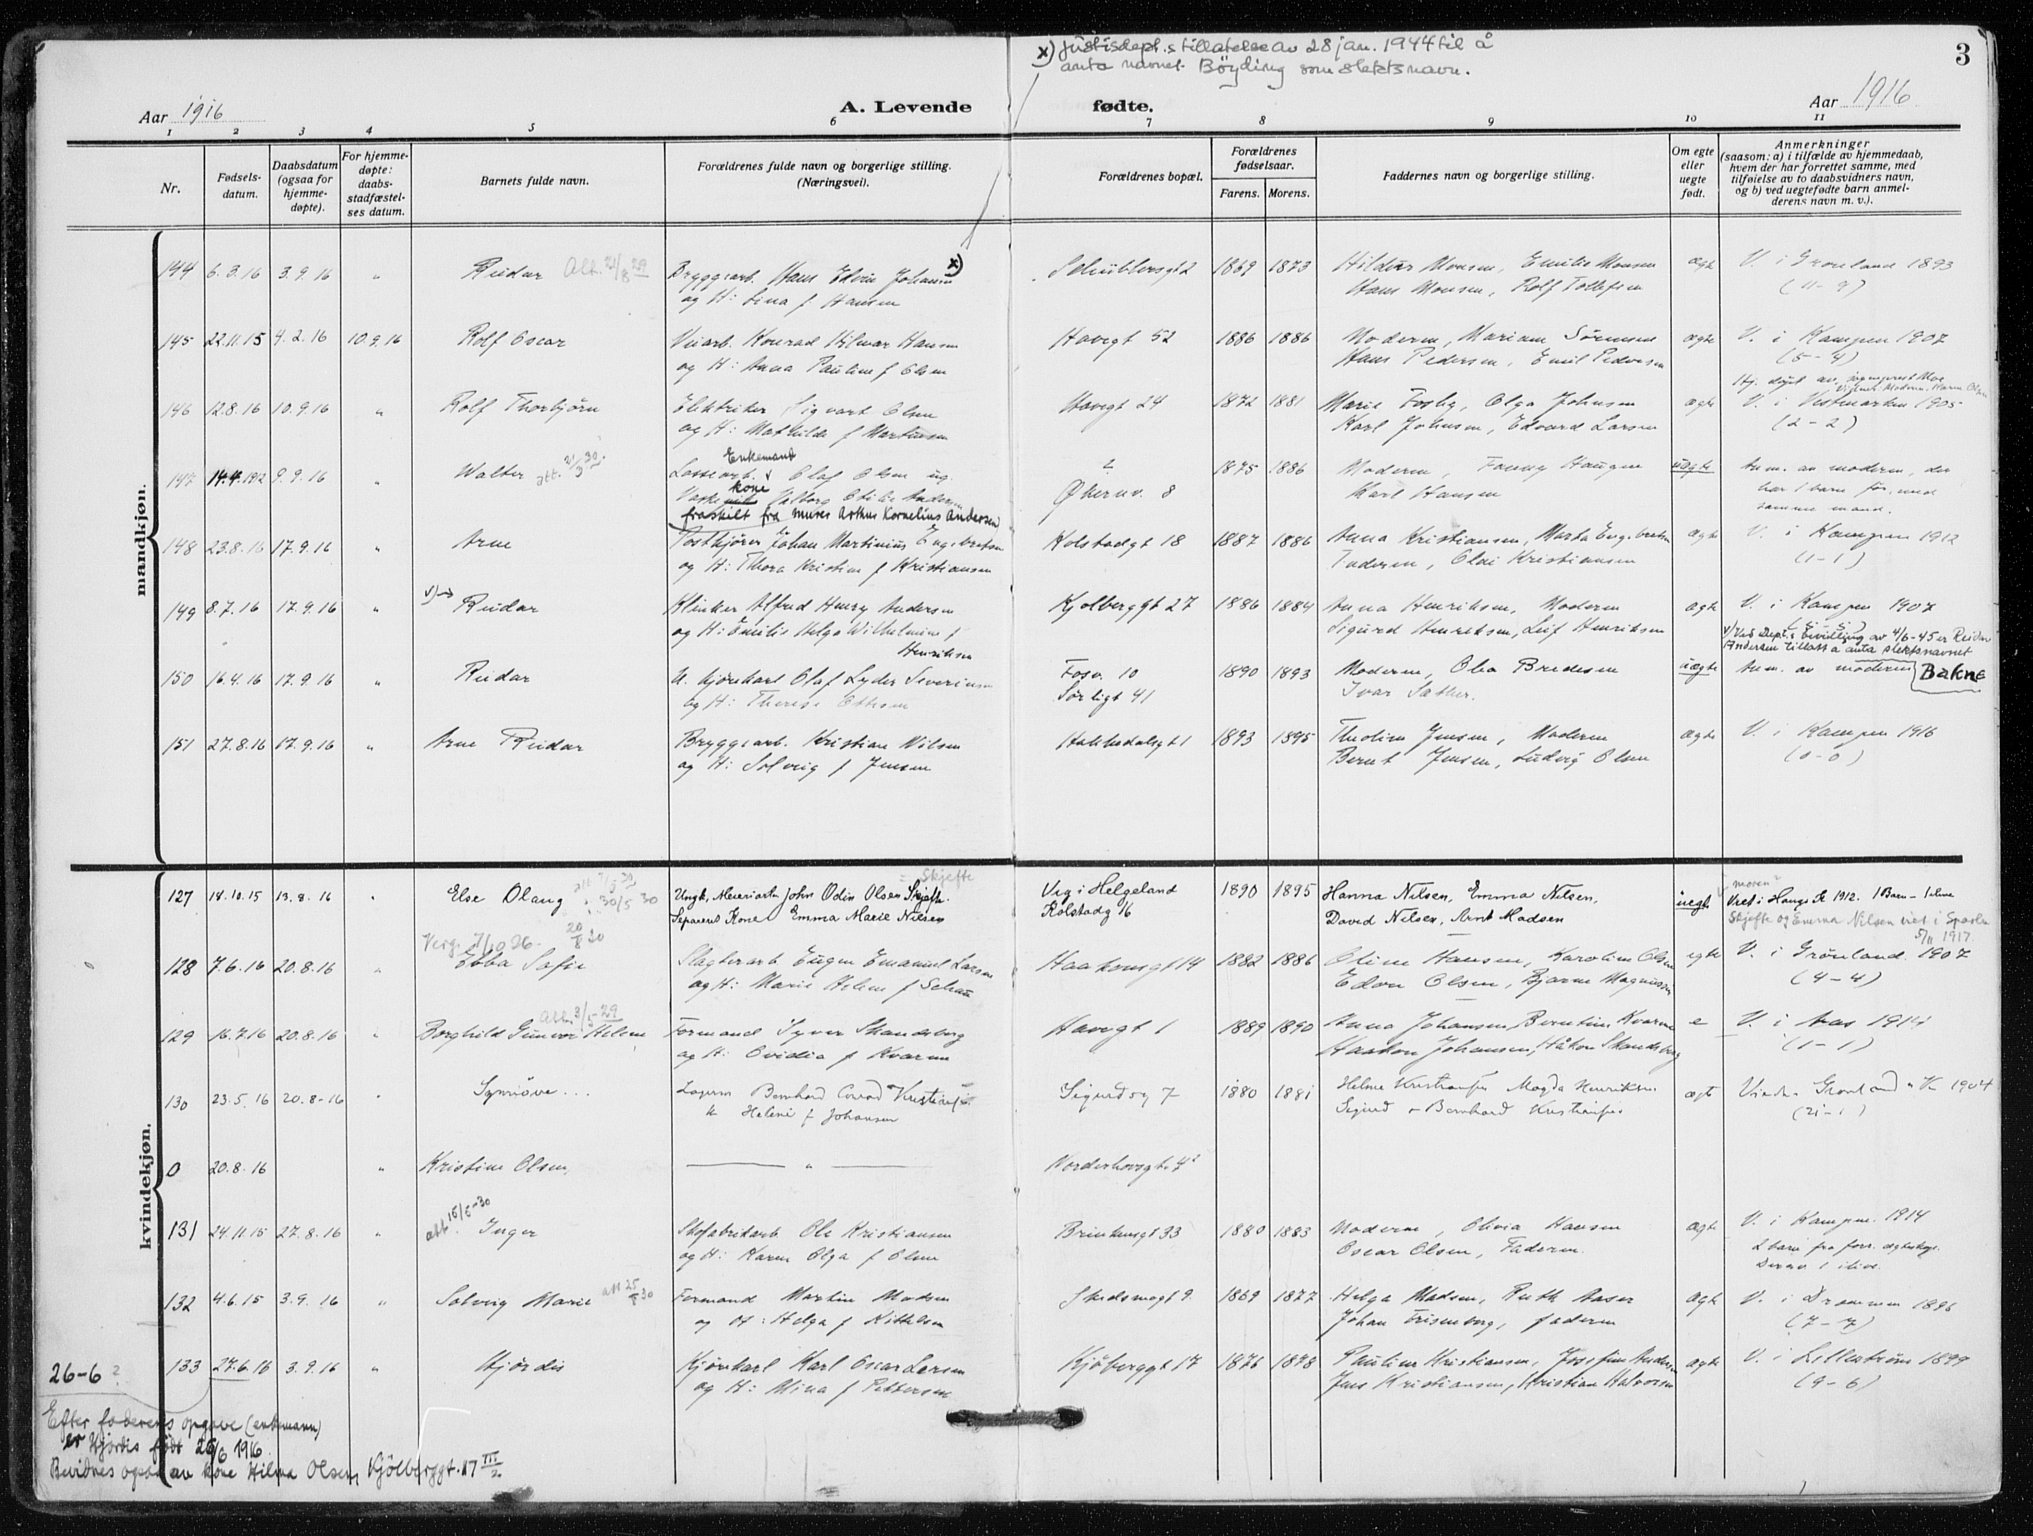 x) Justisdept.s tillatelse av 28 jan. 1944 til å
anta navnet Böyding som slektsnavn.
3
Aar 1916
A. Levende fødte.
Aar 1916
1 2 3 4 5 6 7 8 9 10 11
Nr.
Fødsels-
datum.
Daabsdatum
(ogsaa for
hjemme-
døpte).
For hjemme-
døpte:
daabs-
stadfæstel-
ses datum.
Barnets fulde navn.
Forældrenes fulde navn og borgerlige stilling.
(Næringsvei).
Forældrenes bopæl.
Forældrenes
fødselsaar.
Farens. Morens.
Faddernes navn og borgerlige stilling.
Om egte
eller
uegte
født.
Anmerkninger
(saasom: a) i tilfælde av hjemmedaab,
hvem der har forrettet samme, med
tilføielse av to daabsvidners navn,
og b) ved uegtefødte barn anmel-
derens navn m. v.).
mandkjøn.
144 6.3.16 3.9.16 " Reidar Att. 21/8 29 Bryggarb. Hans Edvin Johansen x) Schüblersgt 2 1869 1873 Hildur Monsen, Emilie Monsen ægte V. i Grønland 1893
og H: Lina f Hansen Hans Monsen, Rolf Tollefsen (11-9)
145 22.11.15 4.2.16 10.9.16 Rolf Oscar Veiarb. Konrad Hilmar Hansen Havegt 52 1886 1886 Moderen, Mariam Sörensen ægte V. i Kampen 1907
og H: Anna Pauline f Olsen Hans Pedersen, Emil Pedersen (5-4)
Hj. døpt av
146 12.8.16 10.9.16 " Rolf Thorbjörn Elektriker Sigvart Olsen Havegt 24 1872 1881 Marie Fosby, Olga Johnsen ægte V. i Vestmarken 1905
og H: Mathilde f Martinsen Karl Johnsen, Edvard Larsen (2-2)
147 14.4.1912 9.9.16 " Walter att. 21/3 30. Enkemand
Lossearb. Olaf Olsen og 1875 1886 Moderen, Fanny Haugen uægte Anm. av moderen, der
kone Økernv. 8 Karl Hansen har 1 barn før, med
fraskilt fra murer Arthur Kornelius Andersen samme mand.
148 23.8.16 17.9.16 " Arne Postkjører Johan Martinius Engebretsen Kolstadgt 18 1887 1886 Anna Kristiansen, Marta Engebretsen ægte V. i Kampen 1912
og H: Thora Kristine f Kristiansen Faderen, Olai Kristiansen (1-1)
149 8.7.16 17.9.16 " v)→ Reidar Klinker Alfred Henry Andersen Kjølberggt 27 1886 1884 Anna Henriksen, Moderen ægte V. i Kampen 1907
og H: Emilie Helga Wilhelmine f Sigurd Henriksen, Leif Henriksen (5-5)
Henriksen
v) Ved Dept.s bevilling av 4/6-45 er Reidar
Andersen tillatt å anta slektsnavnet
Bakne
150 16.4.16 17.9.16 " Reidar U. kjørekarl Olaf Lyder Severinsen Fosv. 10 1890 1893 Moderen, Olea Bredesen uægte Anm. av moderen
og H: Therese Ottesen Sørligt 41 Ivar Sæther.
151 27.8.16 17.9.16 " Arne Reidar Bryggearb. Kristian Nilsen 1893 1895 Theoline Jensen, Moderen ægte V. i Kampen 1916
og H: Solveig f Jensen Bernt Jensen, Ludvig Olsen (0-0)
kvindekjøn.
127 18.10.15 13.8.16 " Else Olaug 30/5 30 Ungk. Meieriarb. John Odin Olsen Skjefte Skjefte Veg i Helgeland 1890 1895 Hanna Nilsen, Emma Nilsen, uegt moren?
Separert Kone Emma Marie Nilsen Kolstadg 16 David Nilsen, Arnt Madsen Viet i Hauges K 1912. 1 Barn - 1 elive
Skjefte og Emma Nilsen viet i Sparbu
5/11 1917.
Verg. 7/10 26. 20/8 30
128 7.6.16 20.8.16 " Ebba Sofie Slagterarb Eugen Emanuel Larsen Haakonsgt 14 1882 1886 Oline Hansen, Karoline Olsen egte V. i Grønland 1907
og H: Marie Helene f Schau Edvin Olsen, Bjarne Magnussen (4-4)
Att. 3/5 29
129 16.7.16 20.8.16 " Borghild Gunvor Helene Formand Syver Skandsberg Havegt 1 1889 1890 Anna Johansen, Berntine Kvarme e V. i Aas 1914
og H: Ovidia f Kvarme Haakon Johansen, Håkon Skandsberg (1-1)
130 23.5.16 20.8-16 " Synnöve... Bernhard Conrad Kristiansen Sigurdsg 7 1880 1881 Helene Kristiansen Magda Henriksen ægt 1904
Helene f Johansen Sigurd - Bernhard Kristiansen (2-1)
0 20.8.16 " Kristine Olsen, — " — Norderhovsgt 4²
131 24.11.15 27.8.16 " att. 15/5-30 Inger Skofabrikarb Ole Kristiansen Brinkensgt 33 1880 1883 Moderen, Olivia Hansen ægte V. i Kampen 1914
og H: Karen Olga f Olsen Oscar Olsen, Faderen. 2 barn fra forr. ægteskap.
Derav 1 ilive.
132 4.6.15 3.9.16 " Solveig Marie att 25/8 30 Formand Martin Madsen Skedsmogt 9. 1869 1877 Helga Madsen, Ruth Aaser ægte V. i Drammen 1896
og H: Helga f Kittelsen Johan Frisenborg, faderen (7-7)
133 27.6.16 3.9.16 " Hjördis Kjørekarl Karl Oscar Larsen Kjölberggt 17 1876 1878 Pauline Kristiansen, Josefine Andersen ægte V. i Lillestrøm 1899
og H: Mina f Pettersen Jens Kristiansen, Kristian Halvorsen (9-6)
26-6?
Efter faderens opgave (enkemann)
er Hjördis født 26/6 1916.
Bevidnes også av kone Hilma Olsen, Kjölberggt. 17 III/2